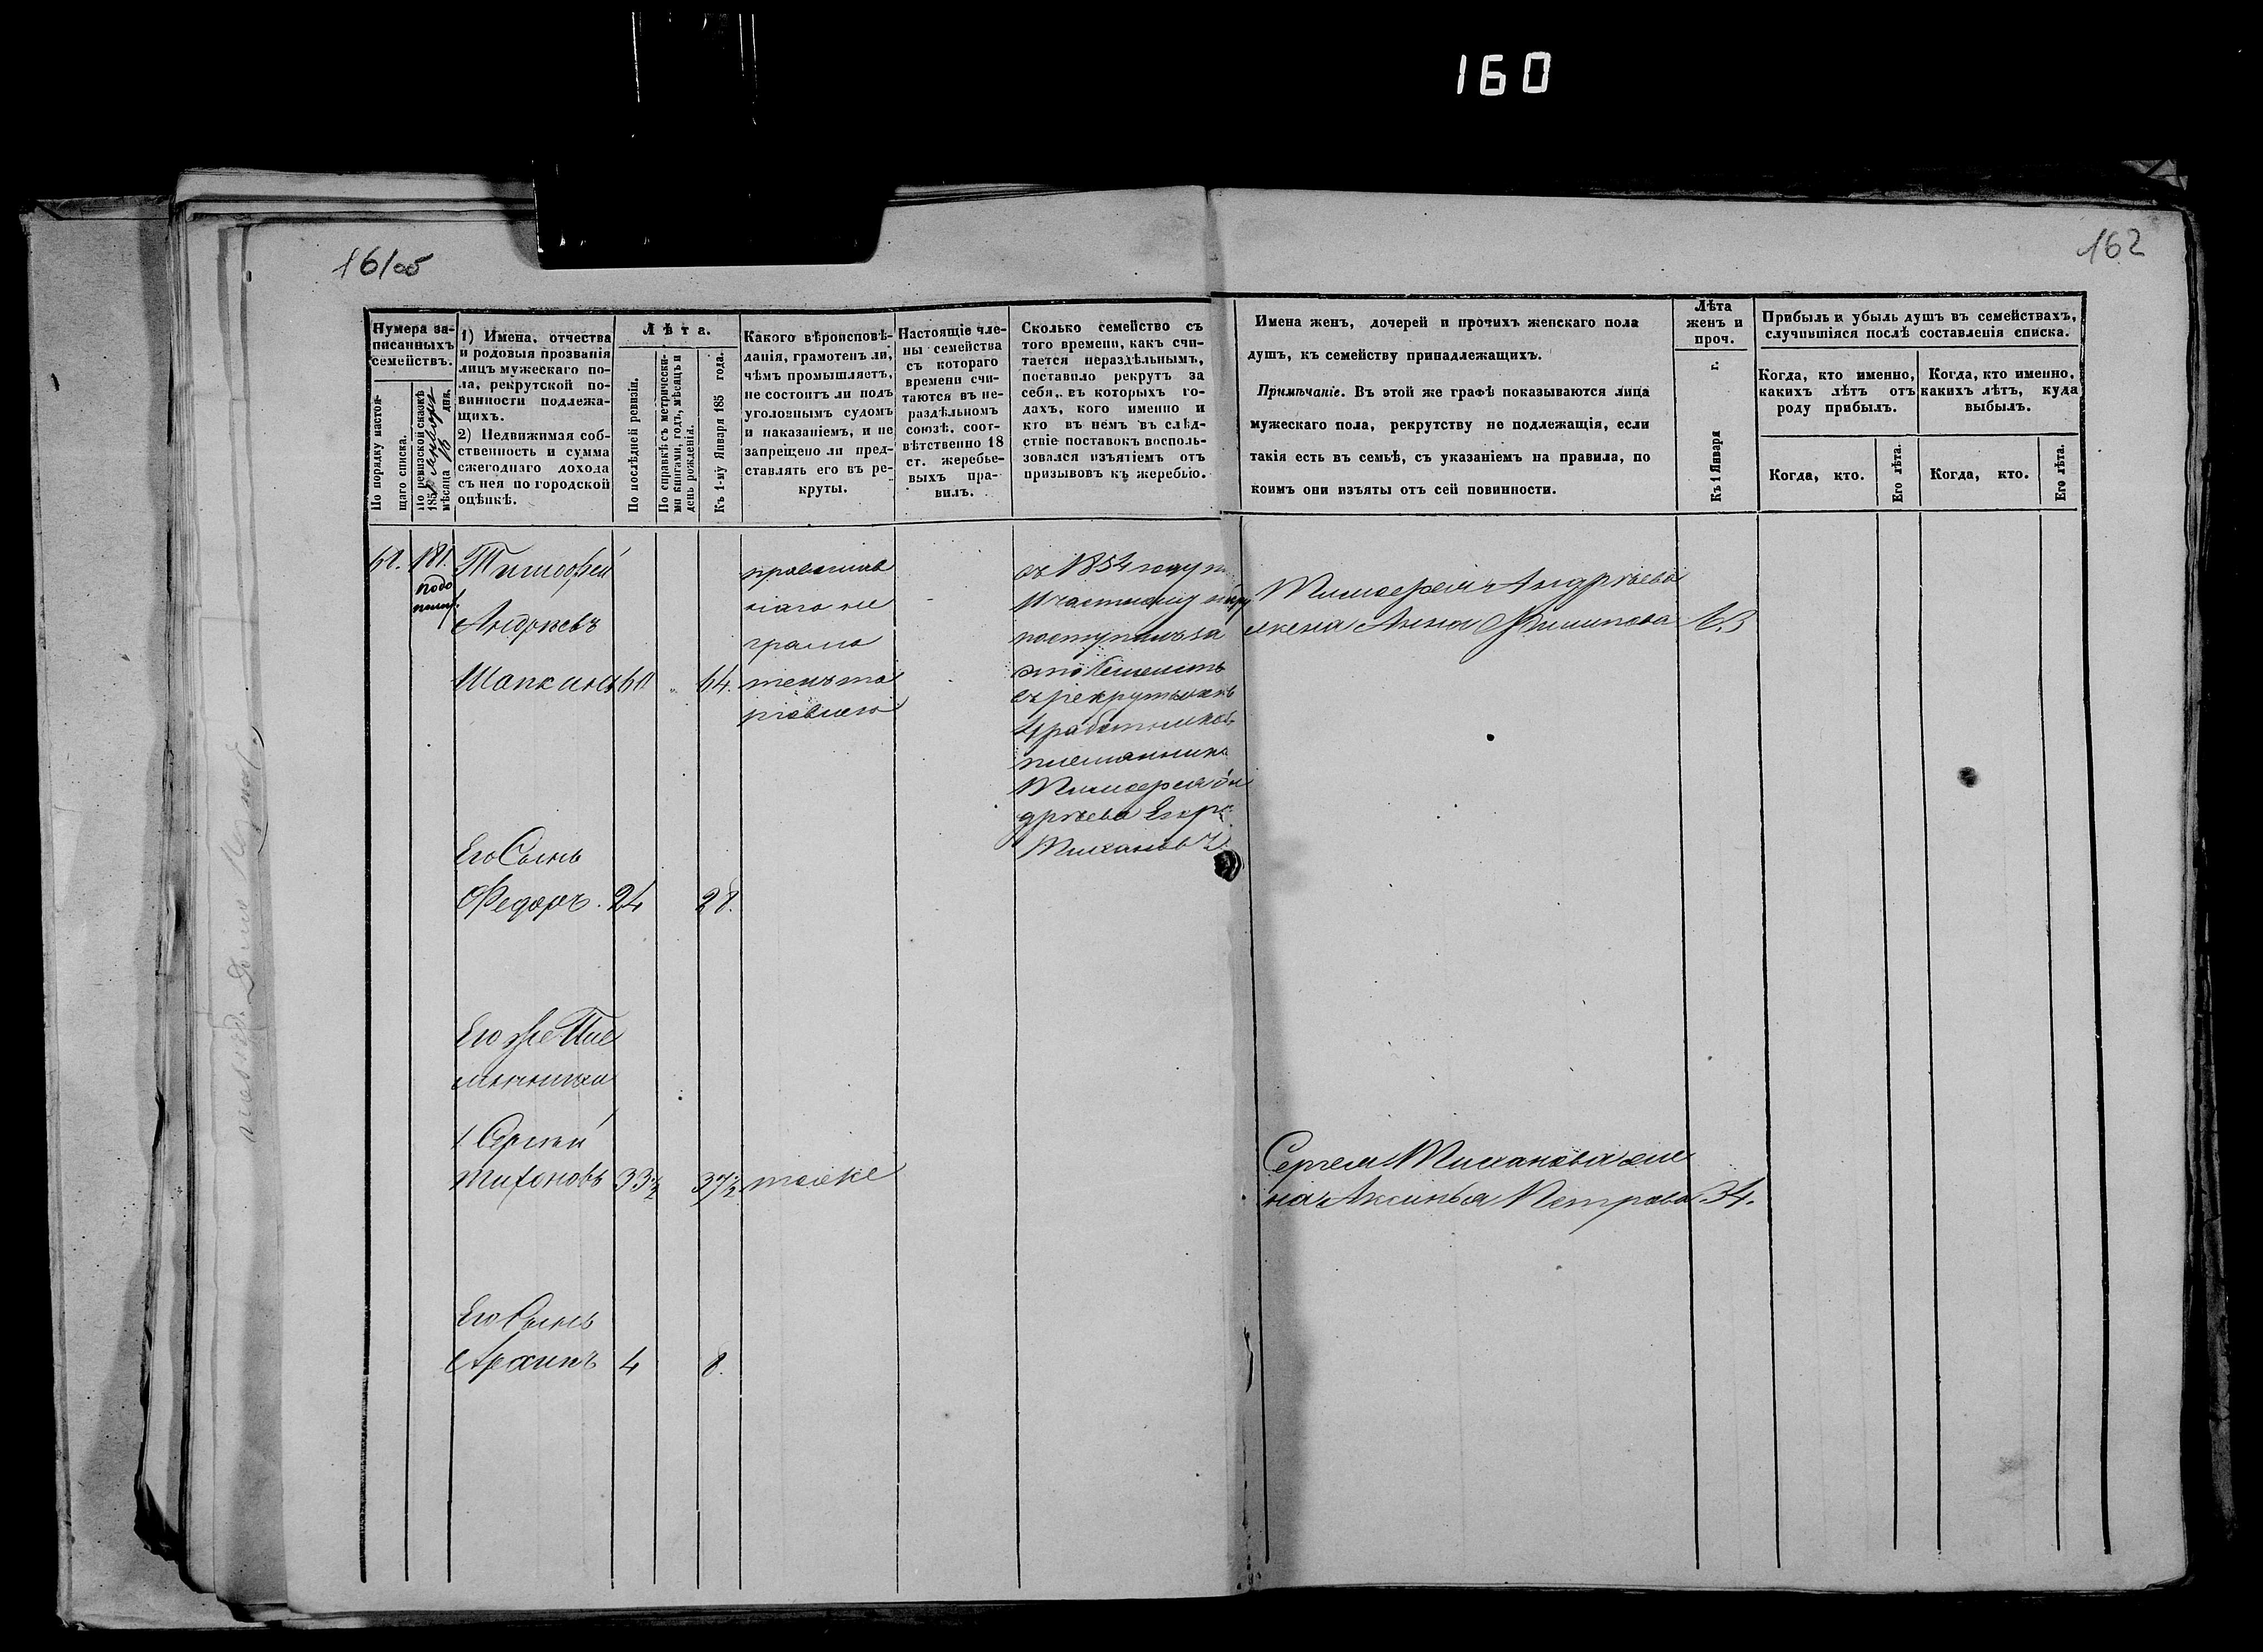 160
161об
162
Нумера за-
писанныхъ
семействъ.
По порядку настоя-
щаго списка.
По ревизской сказкѣ
185
мѣсяца дня.
1) Имена, отчества
и родовыя прозванія
лицъ мужескаго по-
ла, рекрутской по-
винности подлежа-
щихъ.
2) Недвижимая соб-
ственность и сумма
ежегоднаго дохода
съ нея по городской
оцѣнкѣ.
Лѣта.
По послѣдней ревизіи.
По справкѣ съ метрически-
ми книгами, годъ, мѣсяцъ и
день рожденія.
Къ 1-му Января 185 года.
Какого вѣроисповѣ-
данія, грамотенъ ли,
чѣмъ промышляетъ,
не состоитъ ли подъ
уголовнымъ судомъ
и наказаніемъ, и не
запрещено ли пред-
ставлять его въ ре-
круты.
Настоящіе чле-
ны семейства
съ котораго
времени счи-
таются въ не-
раздѣльномъ
союзѣ, соот-
вѣтственно 18
ст. жеребье-
выхъ пра-
вилъ.
Сколько семейство съ
того времени, какъ счи-
тается нераздѣльнымъ,
поставило рекрутъ за
себя, въ которыхъ го-
дахъ, кого именно и
кто въ немъ въ слѣд-
ствіе поставокъ восполь-
зовался изъятіемъ отъ
призывовъ къ жеребью.
Имена женъ, дочерей и прочихъ женскаго пола
душъ, къ семейству принадлежащихъ.
Примѣчаніе. Въ этой же графѣ показываются лица
мужескаго пола, рекрутству не подлежащія, если
такія есть въ семьѣ, съ указаніемъ на правила, по
коимъ они изъяты отъ сей повинности.
Лѣта
женъ и
проч.
Къ 1 Января г.
Прибыль и убыль душъ въ семействахъ,
случившіяся послѣ составленія списка.
Когда, кто именно,
какихъ лѣтъ отъ
роду прибылъ.
Когда, кто именно,
какихъ лѣтъ, куда
выбылъ.
Когда, кто.
Его лѣта.
Когда, кто.
Его лѣта.
181.
Тимофей
Андреевъ
Шапкинъ 60 64.
православ
наго не
грамо
тенъ то
рговлею
въ 1854 году
11 частному
поступилъ за
это семейств
въ рекруты изъ
4 работниковъ
племянникъ
Тимофея Ан
дреева Егоръ
Тихановъ
Тимофея Андреева
жена Анна Филипова 63
Его Сынъ
Федоръ. 24 28.
Его же Пле
мянники
1 Сергей
Тихоновъ 33½ 37½ тоже
Сергея Тиханова же
на Аксинья Петрова 34.
Его Сынъ
Архипъ 4 8.